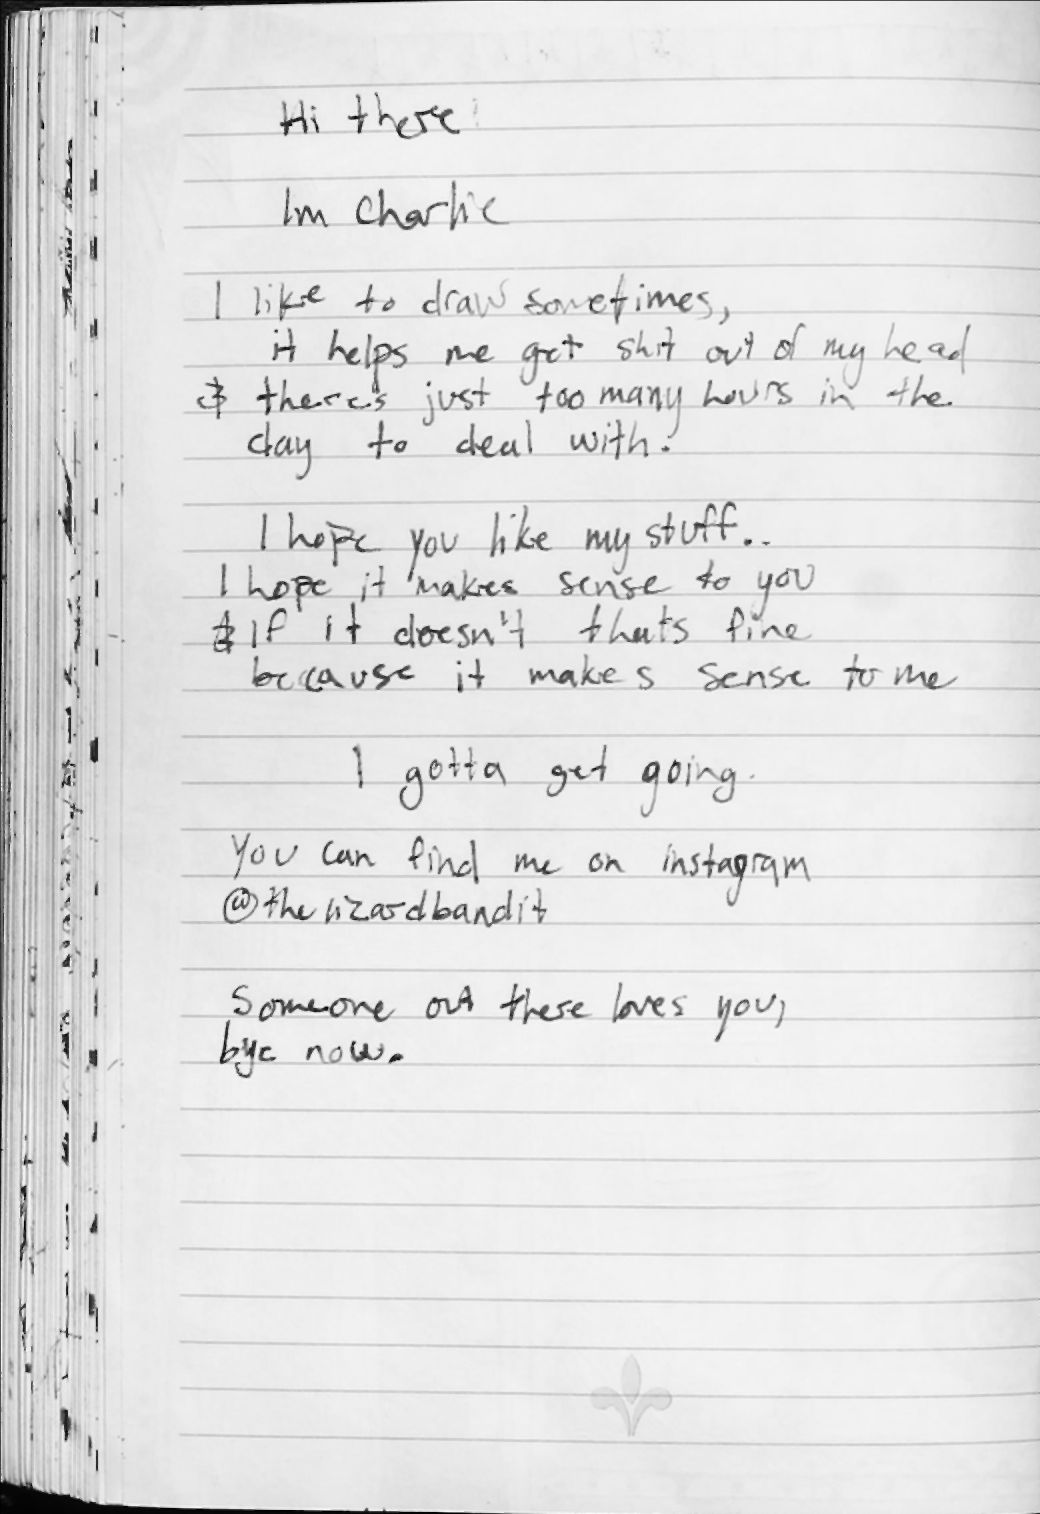 Hi there
Im Charlie
I like to draw sometimes,
it helps me get shit out of my head
& theres just too many hours in the
day to deal with.
I hope you like my stuff..
I hope it makes sense to you
& If it doesn't thats fine
because it makes sense to me
I gotta get going.
You can find me on instagram
@thelizardbandit
Someone out there loves you,
bye now.